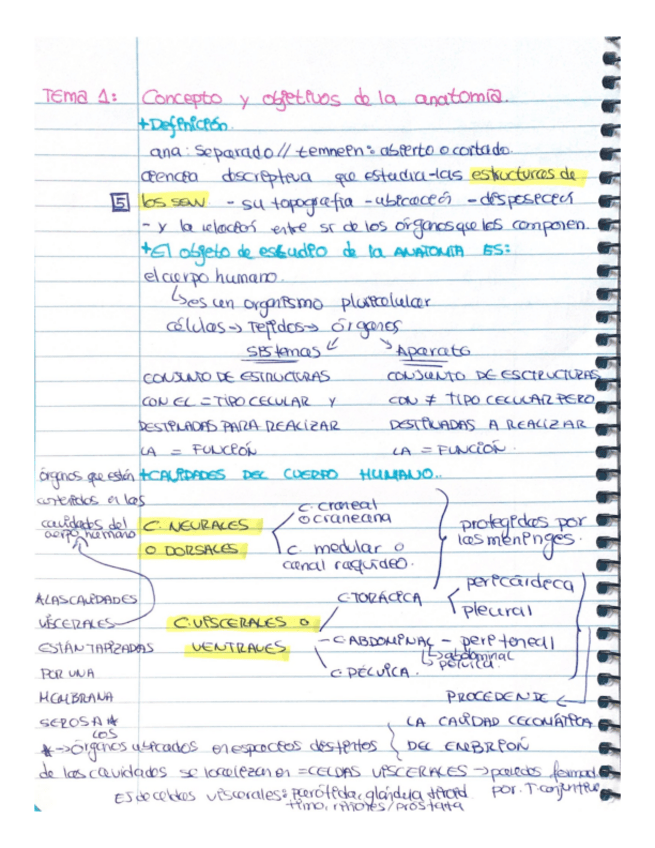 Tema 1: Concepto y objetivos de la anatomía.
+Definición.
ana: separado // temnein: abierto o cortado.
ciencia descriptiva que estudia -las estructuras de
5 los sew -su topografía -ubicación -disposición
- y la relación entre sí de los órganos que los componen.
+El objeto de estudio de la ANATOMIA ES:
el cuerpo humano.
↳es un organismo pluricelular
células → Tejidos → órganos
sistemas Aparato
CONJUNTO DE ESTRUCTURAS CONJUNTO DE ESCTRUCTURAS
CON EL = TIPO CELULAR Y CON ≠ TIPO CELULAR PERO
DESTINADAS PARA REALIZAR DESTINADAS A REALIZAR
LA = FUNCIÓN LA = FUNCIÓN.
órganos que están +CAVIDADES DEL CUERPO HUMANO..
contenidos en las
cavidades del
cuerpo humano
C. NEURALES
O DORSALES
C. craneal
o craneana
C. medular o
canal raquídeo.
protegidas por
las meninges.
A LAS CAVIDADES
VÍSCERALES
ESTÁN TAPIZADAS
POR UNA
MEMBRANA
SEROSA *
C.VISCERALES O
VENTRALES
C-TORÁCICA
pericárdica
pleural
-C-ABDOMINAL - peritoneal
↳abdominal
pélvica.
C-PÉLVICA.
PROCEDEN DE
LA CAVIDAD CELOMÁTICA
DEL EMBRIÓN
los
*→órganos ubicados en espacios distintos
de las cavidades se localizan en = CELDAS VISCERALES → paredes formad
por. T-conjuntivo
Ej de celdas viscerales: parótida, glándula tiroid
timo, riñones/próstata